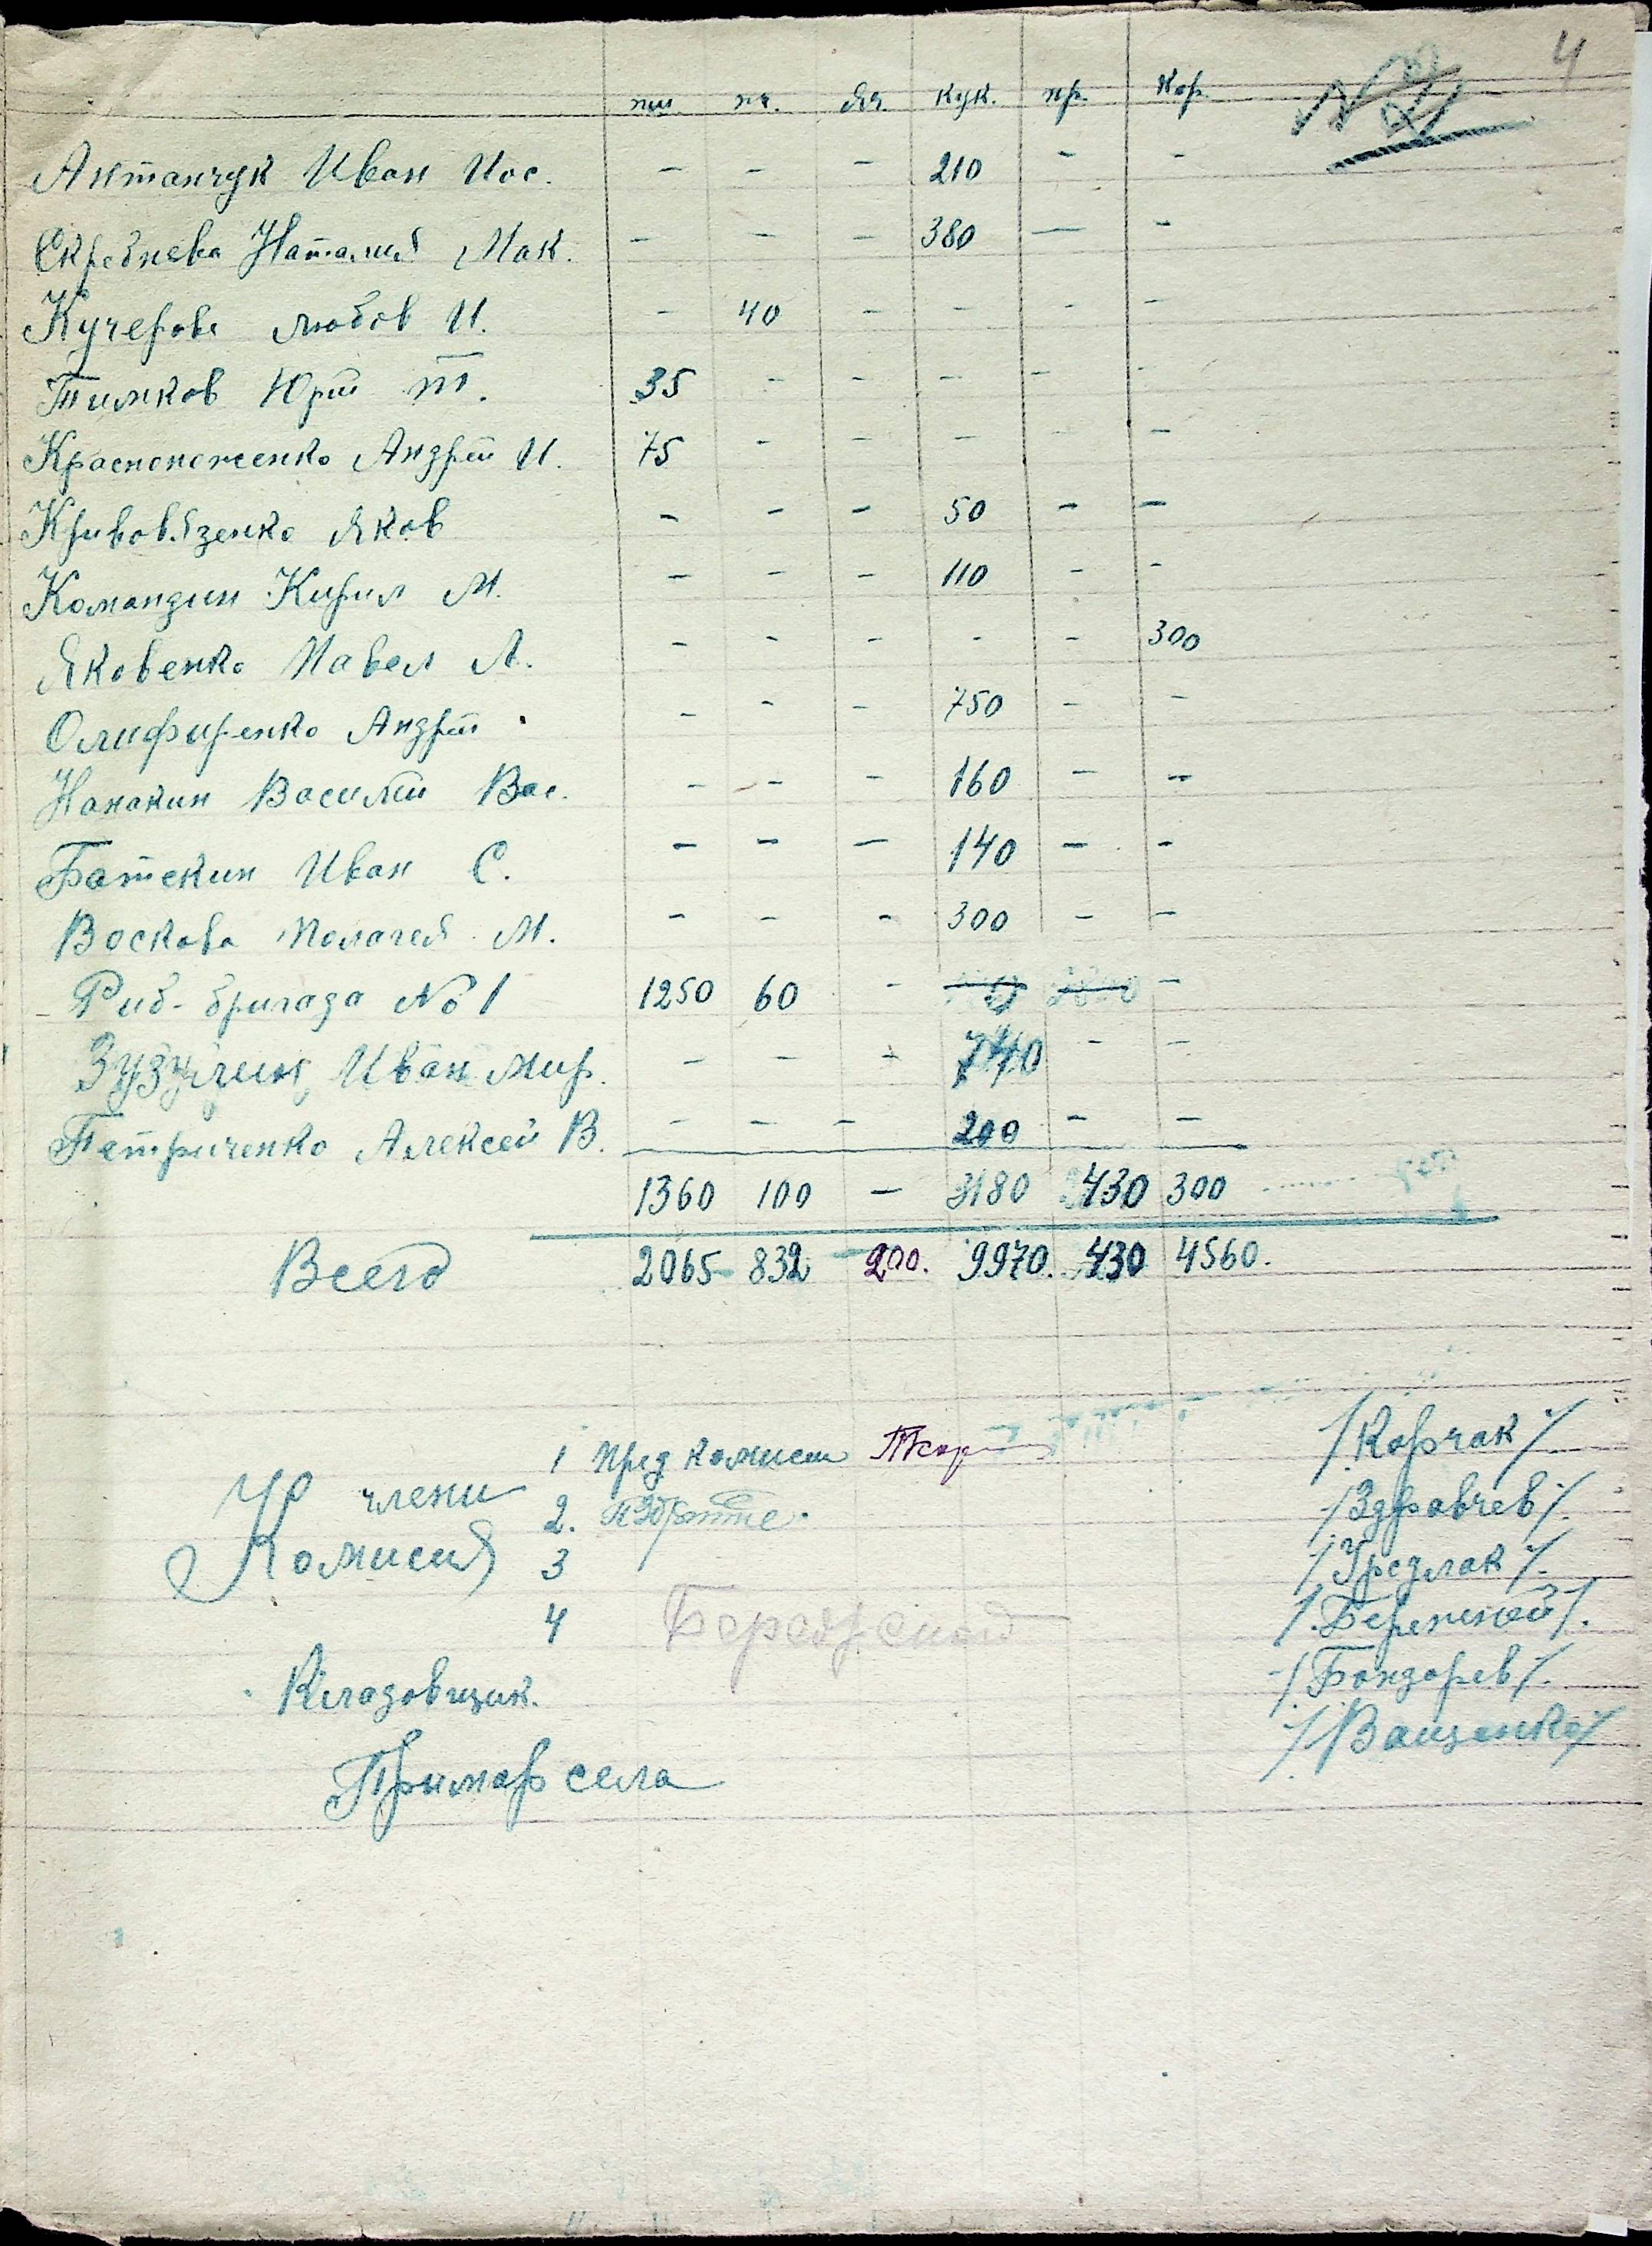 4
пш. пч. яч. кук. пр. кор. №
Антанчук Иван Иос. - - - 210 - -
Скребнева Наталия Мак. - - - 380 - -
Кучерова Любов И. - 40 - - - -
Тимков Юрій Т. 35 - - - - -
Красноноженко Андрій И. 75 - - - - -
Кривовязенко Яков - - - 50 - -
Командин Кирил М. - - - 110 - -
Яковенко Павел А. - - - - - 300
Олифиренко Андрій - - - 750 - -
Нанакин Василий Вас. - - - 160 - -
Батекин Иван С. - - - 140 - -
Воскова Полагея М. - - - 300 - -
Риб-бригада № 1 1250 60 - -
Зузулин Иван Мир. - - - 740 - -
Петриченко Алексей В. - - - 200 - -
1360 100 - 3180 430 300
Всего 2065 832 200. 9970. 430 4560.
1 Пред комисии /Корчак/
члени 2. /Здравчев/
Комисия 3 /Уредлак/
4 /Бережной/
Кладовщик. /Бондарев/
Примар села /Ващенко/